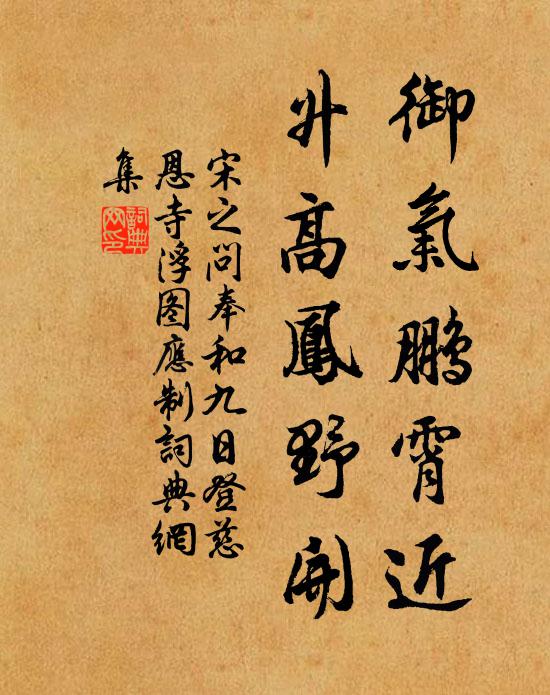 御氣鵬霄近
升高鳳野開
宋之问奉和九日登慈
恩寺浮图應制詞典網
集
詞典網印